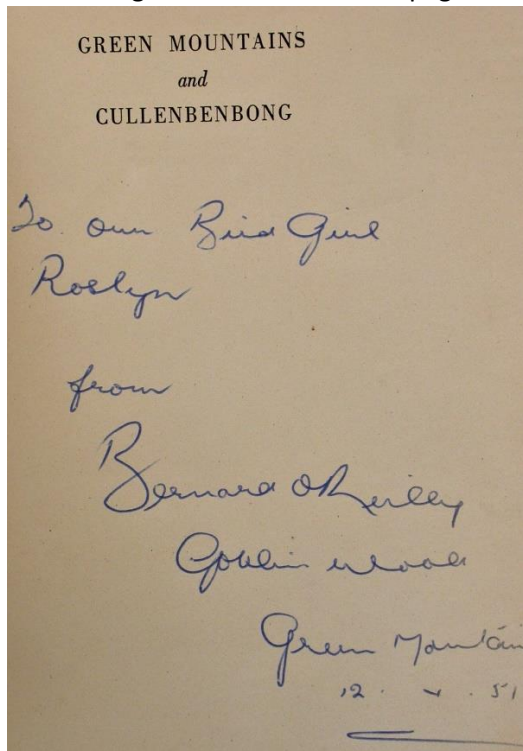 GREEN MOUNTAINS
and
CULLENBENBONG
To our Bird Girl
Roslyn
from
Bernard O'Reilly
Goblin Wood
Green Mountain
12. 51